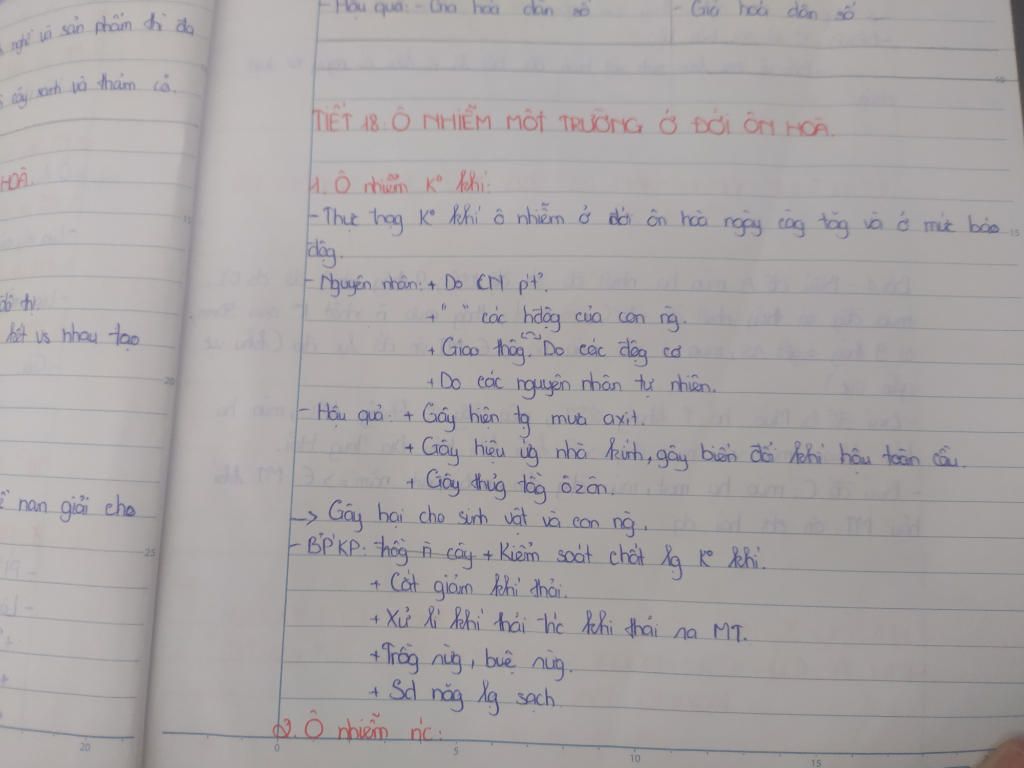 nghề và sản phẩm chỉ đa
cây xanh và thảm cỏ.
HOÀ.
đô thị.
kết vs nhau tạo
nan giải cho
- Hậu quả: - Già hoá dân số
- Già hoá dân số
TIẾT 18. Ô NHIỄM MÔT TRƯỜNG Ở ĐỚI ÔN HOÀ.
1. Ô nhiễm K° khí:
- Thực trạg K° khí ô nhiễm ở đới ôn hoà ngày càg tăg và ở mức báo
độg.
- Nguyên nhân: + Do CN ptr.
+ " " các hđộg của con ng.
+ Giao thôg. Do các độg cơ
+ Do các nguyên nhân tự nhiên.
- Hậu quả: + Gây hiện tg mưa axit.
+ Gây hiệu ứg nhà kính, gây biến đổi khí hậu toàn cầu.
+ Gây thủg tầg ôzôn.
-> Gây hại cho sinh vật và con ng.
- BPKP: trồg n cây + Kiểm soát chất lg K° khí.
+ Cắt giảm khí thải.
+ Xử lí khí thải trc khi thải ra MT.
+ Trồg rừg, bvệ rừg.
+ Sd năg lg sạch.
2. Ô nhiễm nc:
20
25
15
20
5
10
15